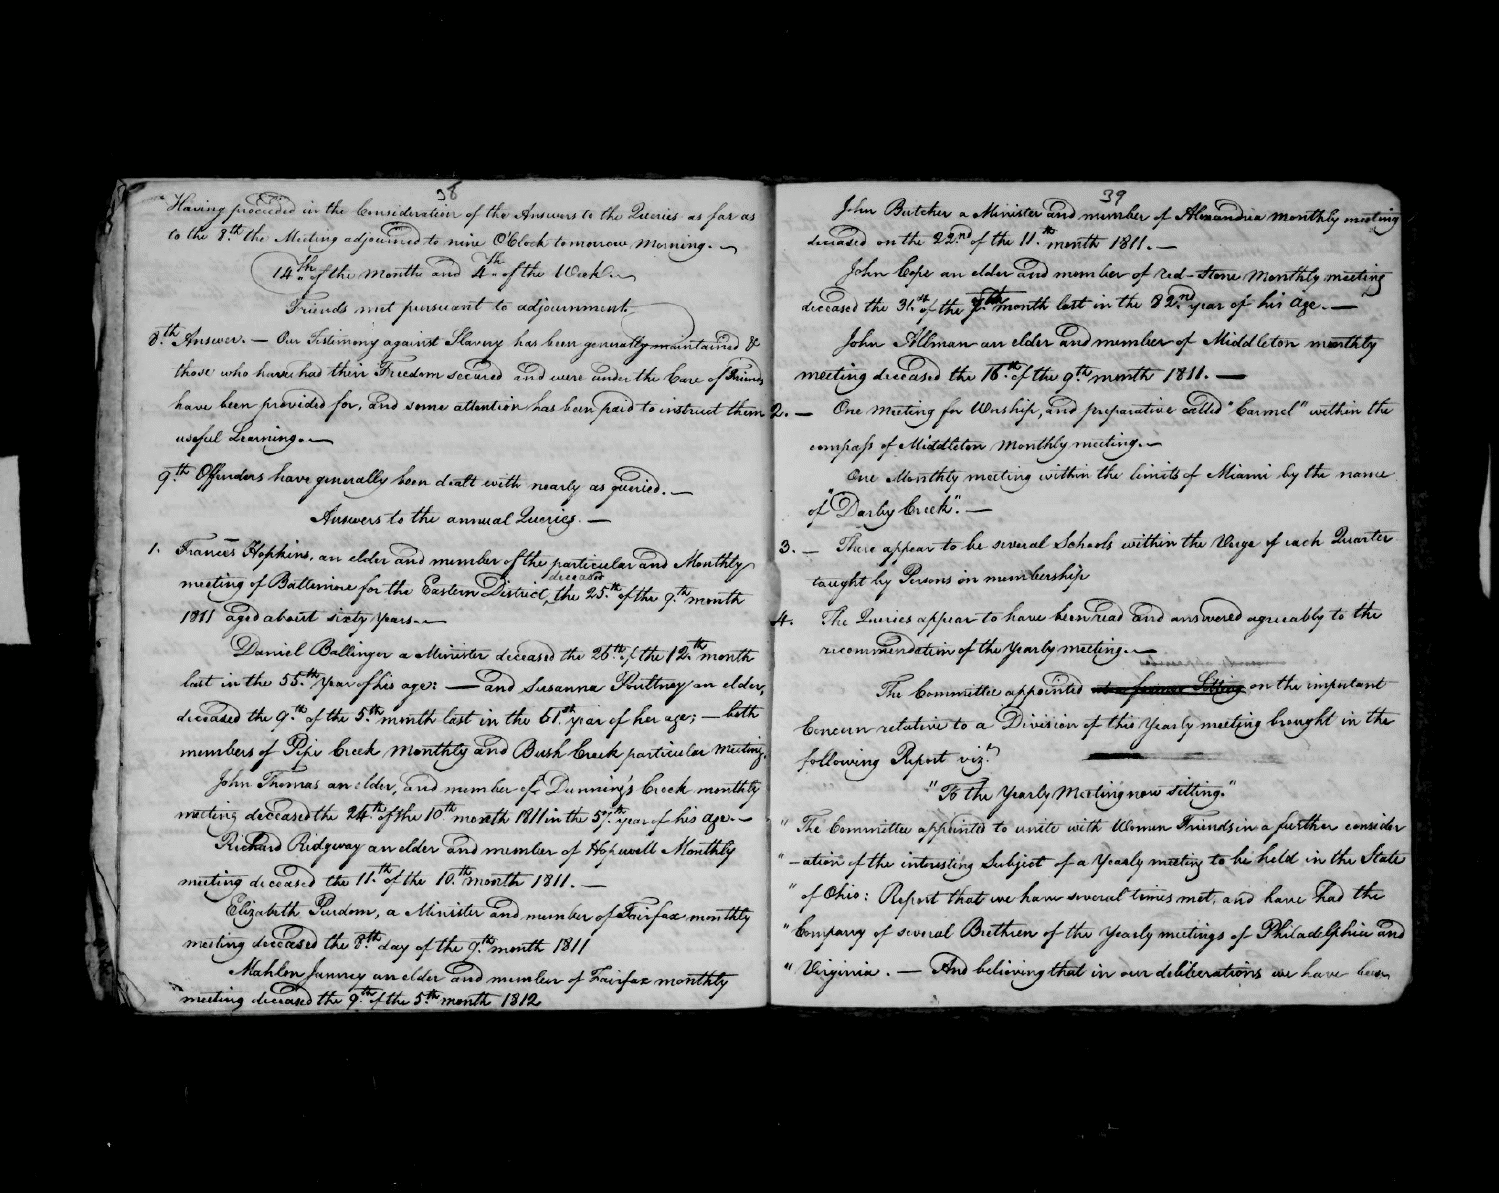 38
Having proceeded in the Consideration of the Answers to the Queries as far as
to the 8.th the Meeting adjourned to nine O'Clock tomorrow morning. —
14th of the month and 4th of the Week. —
Friends met pursuant to adjournment.
8.th Answer. — Our Testimony against Slavery has been generally maintained &
those who have had their Freedom secured and were under the Care of Friends
have been provided for, and some attention has been paid to instruct them
useful Learning. —
9.th Offenders have generally been dealt with nearly as queried. —
Answers to the annual Queries. —
1. Frances Hopkins, an elder and member of the particular and Monthly
meeting of Baltimore for the Eastern District, deceased the 25.th of the 9.th month
1811 aged about sixty years. —
Daniel Ballinger a Minister deceased the 26.th of the 12.th month
last in the 55.th year of his age: — and Susanna Poultney an elder,
deceased the 9.th of the 5.th month last in the 61.st year of her age; — both
members of Pipe Creek Monthly and Bush Creek particular Meeting.
John Thomas an elder, and member of Dunning's Creek monthly
meeting deceased the 24.th of the 10th month 1811 in the 57.th year of his age. —
Richard Ridgway an elder and member of Hopewell Monthly
meeting deceased the 11.th of the 10.th month 1811. —
Elizabeth Purdom, a Minister and member of Fairfax monthly
meeting deceased the 8th day of the 9.th month 1811
Mahlon Janney an elder and member of Fairfax monthly
meeting deceased the 9.th of the 5.th month 1812
39
John Butcher a Minister and member of Alexandria monthly meeting
deceased on the 22.nd of the 11.th month 1811. —
John Cope an elder and member of red-stone Monthly meeting
deceased the 31.st of the month last in the 82.nd year of his age. —
John Allman an elder and member of Middleton monthly
meeting deceased the 16.th of the 9.th month 1811. —
2. — One meeting for Worship, and preparative called "Carmel" within the
compass of Middleton Monthly meeting. —
One Monthly meeting within the limits of Miami by the name
of "Darby Creek". —
3. — There appear to be several Schools within the Verge of each Quarter
taught by Persons in membership
4. The Queries appear to have been read and answered agreeably to the
recommendation of the Yearly meeting. —
The Committee appointed at a former Sitting on the important
Concern relative to a Division of this Yearly meeting brought in the
following Report viz.
"To the Yearly Meeting now sitting."
" The Committee appointed to unite with Women Friends in a further consider
" —ation of the interesting Subject of a Yearly meeting to be held in the State
" of Ohio: Report that we have several times met, and have had the
" Company of several Brethren of the Yearly meetings of Philadelphia and
" Virginia. — And believing that in our deliberations we have been